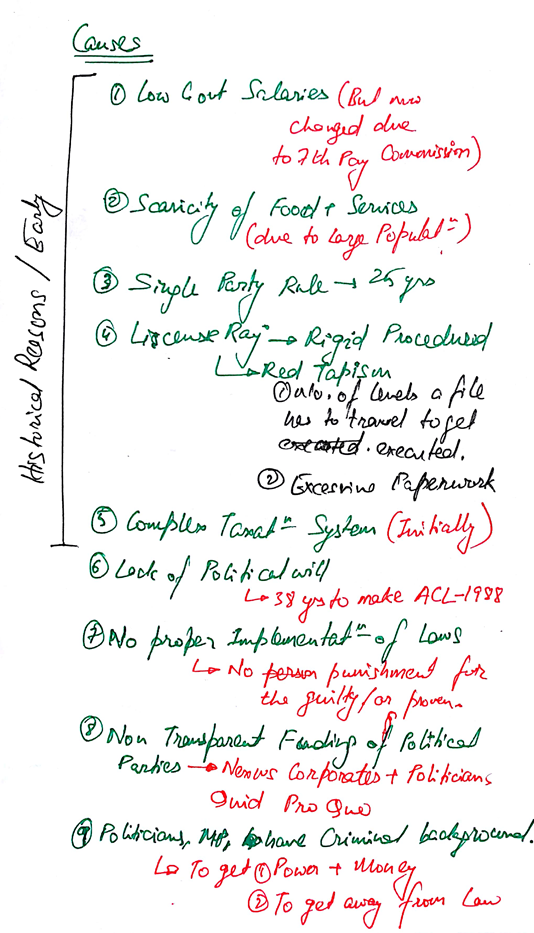 Causes
Historical Reasons / Early
① Low Govt Salaries (But now
changed due
to 7th Pay Commission)
② Scaricity of Food + Services
(due to Large Populatⁿ)
③ Single Party Rule → 25 yrs
④ Liscense Raj → Rigid Procedured
↳ Red Tapism
① No. of levels a file
has to travel to get
executed. executed.
② Excessive Paperwork
⑤ Complex Taxatⁿ System (Initially)
⑥ Lack of Political will
↳ 38 yrs to make ACL-1988
⑦ No proper Implementatⁿ of Laws
↳ No person punishment for
the guilty/or proven.
⑧ Non Transparent Funding of Political
Parties → Nexus Corporates + Politicians
Quid Pro Quo
⑨ Politicians, MP, have Criminal background.
↳ To get ① Power + Money
② To get away from Law